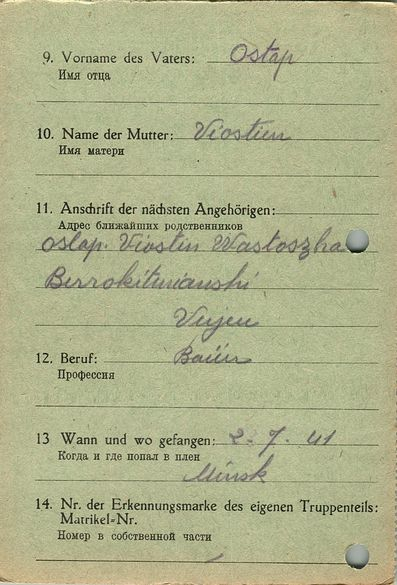 9. Vorname des Vaters: Ostap
Имя отца
10. Name der Mutter: Viostien
Имя матери
11. Anschrift der nächsten Angehörigen:
Адрес ближайших родственников
ostap. Viostin Wastoszha
Berrokitunianshi
12. Beruf:
Профессия
13 Wann und wo gefangen: 2. 7. 41
Когда и где попал в плен
Minsk
14. Nr. der Erkennungsmarke des eigenen Truppenteils:
Matrikel-Nr.
Номер в собственной части